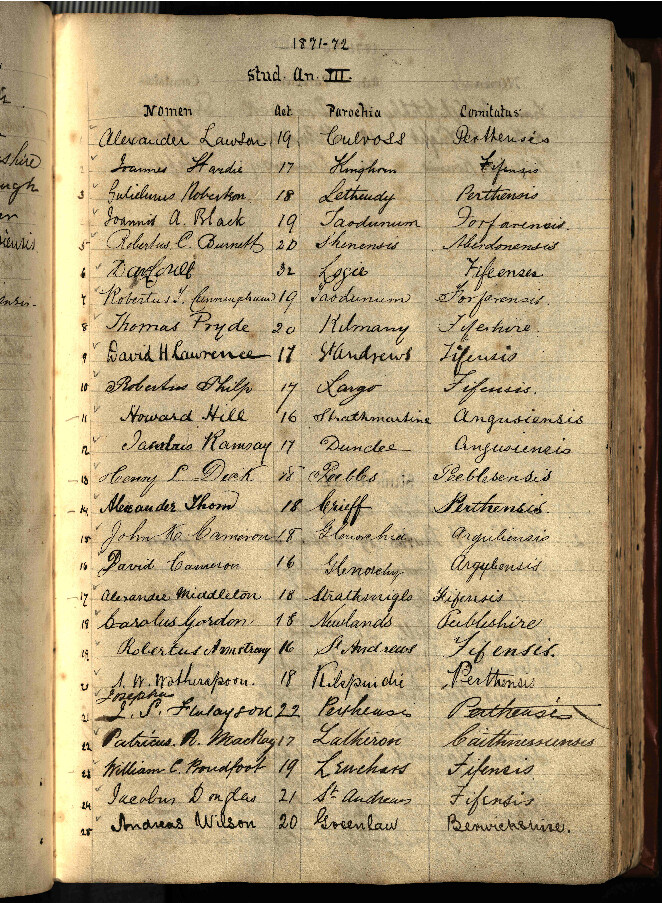 1871-72
Stud. An. III.
Nomen Aet. Parochia Comitatus
1 Alexander Lawson 19 Culross Perthensis
2 Joannes Hardie 17 Kinghorn Fifensis
3 Gulielmus Roberton 18 Lethendy Perthensis
4 Joannis A. Black 19 Taodunum Forfarensis.
5 Robertus C. Burnett 20 Skenensis Aberdonensis
6 32 Logie Fifeenses
7 Robertus J. Cunningham 19 Taodunum Forfarensis.
8 Thomas Pryde 20 Kilmany Fifeshire.
9 David H Lawrence 17 St Andrews Fifensis
10 Robertus Philp 17 Largo Fifensis.
11 Howard Hill 16 Strathmartine Angusiensis
12 Jacobus Ramsay 17 Dundee Angusiensis
13 Henry L Dick 18 Peebles Peeblesensis
14 Alexander Thom 18 Crieff Perthensis.
15 John K. Cameron 18 Glenorchie Argyliensis
16 David Cameron 16 Glenorchy Argylensis
17 Alexander Middleton 18 Strathmiglo Fifensis
18 Carolus Gordon 18 Newlands Peebleshire
19 Robertus Armstrong 16 St Andrews Fifensis.
20 J. W. Wotherspoon. 18 Kilspindie Perthensis
Josephus
21 J. S. Finlayson 22 Perthensis Perthensis
22 Patricus. R. Mackay 17 Latheron Caithnessiensis
23 William C. Proudfoot 19 Leuchars Fifensis
24 Jacobus Douglas 21 St Andrews Fifensis
25 Andreas Wilson 20 Greenlaw Berwickshire.